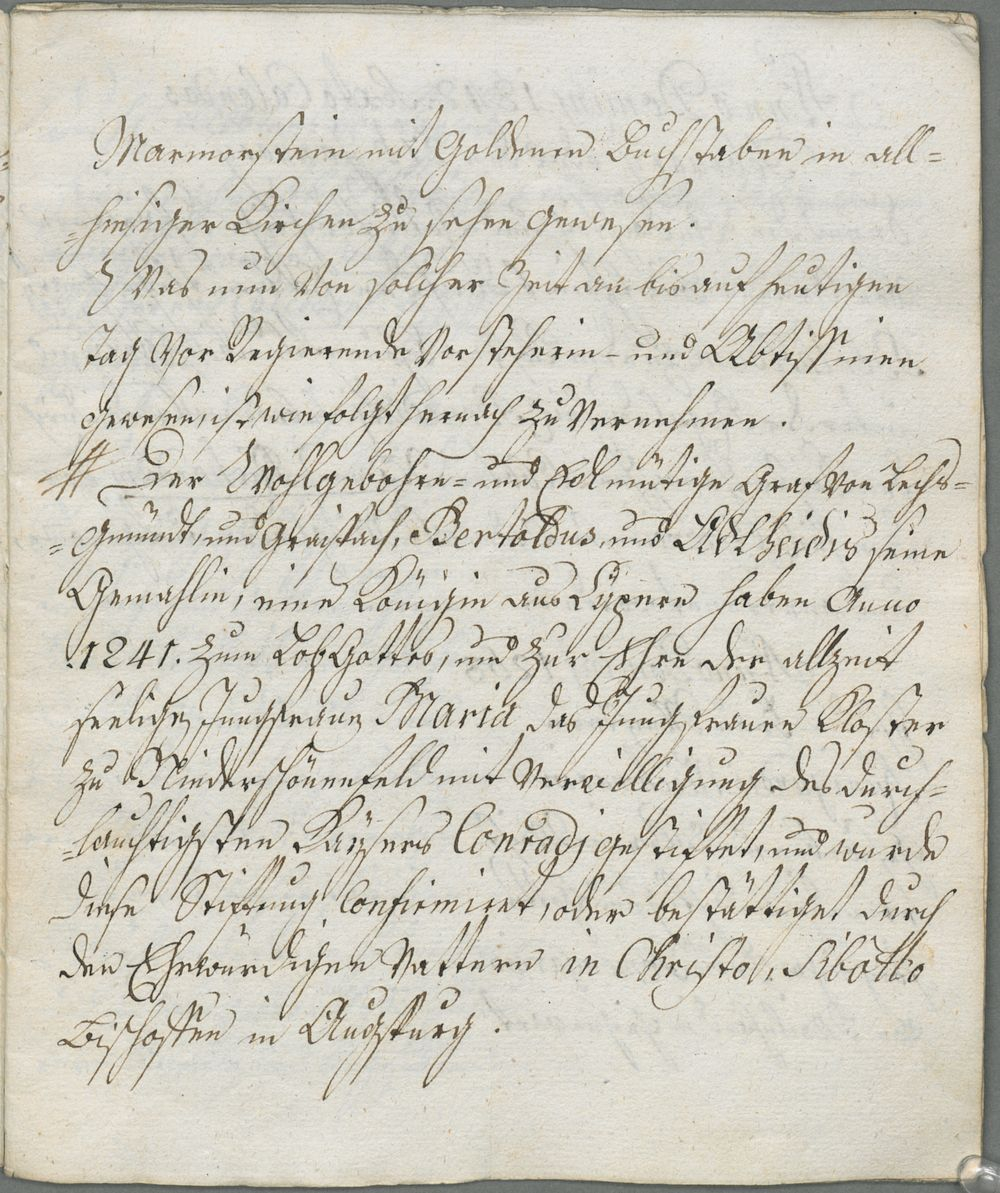 Marmorstein mit Goldenen Buchstaben in all=
=hiesiger Kirchen zu sehen gewesen.
Was nun von solcher Zeit an bis auf heutigen
tag vor Regierende Vorsteherin- und Abtissinen
gewesen, ist wie folgt hernach zu vernehmen.
# Der Wohlgebohrn= und Edlmütige Graf von Lechs=
=gmündt, und Graissach, Bertoldus, und Adlheidis seine
Gemahlin, eine Königin aus Cypern haben Anno
.1241. zum Lob Gottes, und zur Ehre der allzeit
seelige Jungfraue Maria das Jungfrauen Kloster
zu Niederschönenfeld mit Verwilligung des durch=
=lauchtigsten Kaysers Conradj gestifftet, und wurde
diese Stifftung Confirmiret, oder bestättiget durch
den Ehrwürdigen Vattern in Christo, Sibotto
Bischoffen in Augspurg.